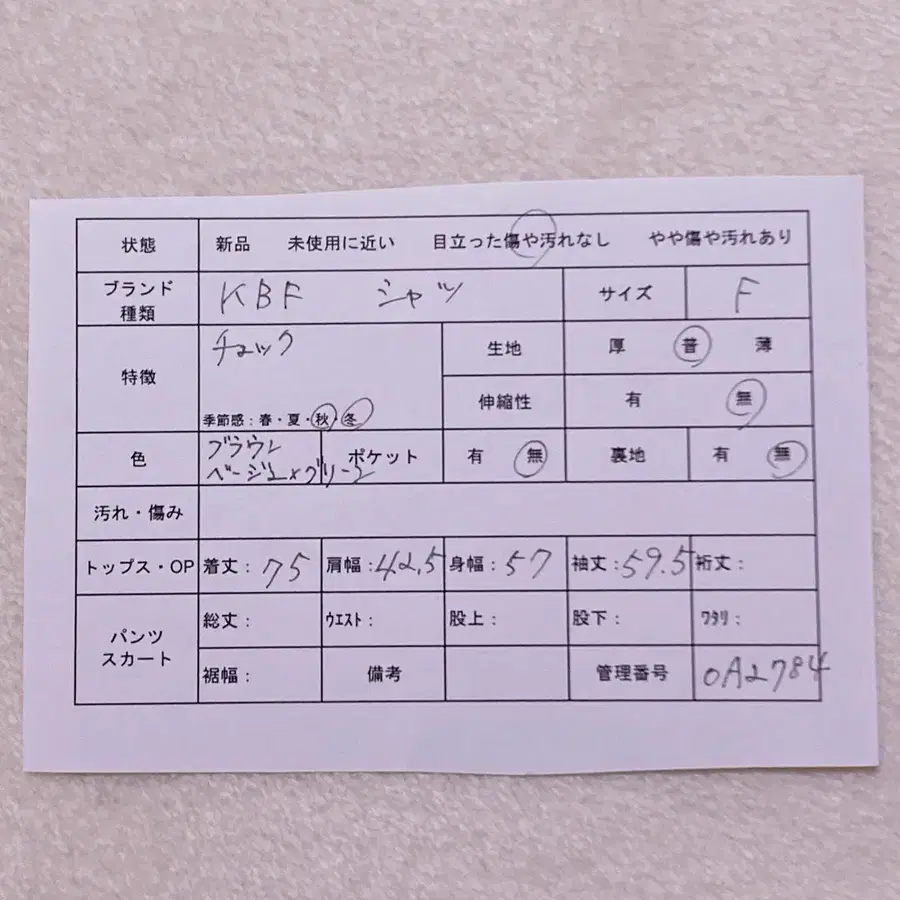 状態 新品 未使用に近い 目立った傷や汚れなし やや傷や汚れあり
ブランド 種類 KBF シャツ サイズ F
特徴 チェック 生地 厚 普 薄
季節感：春・夏・秋・冬 伸縮性 有 無
色 ブラウン ベージュ×グリーン ポケット 有 無 裏地 有 無
汚れ・傷み
トップス・OP 着丈：75 肩幅：42.5 身幅：57 袖丈：59.5 裄丈：
パンツ スカート 総丈： ｳｴｽﾄ： 股上： 股下： ﾜﾀﾘ：
裾幅： 備考 管理番号 0A2784